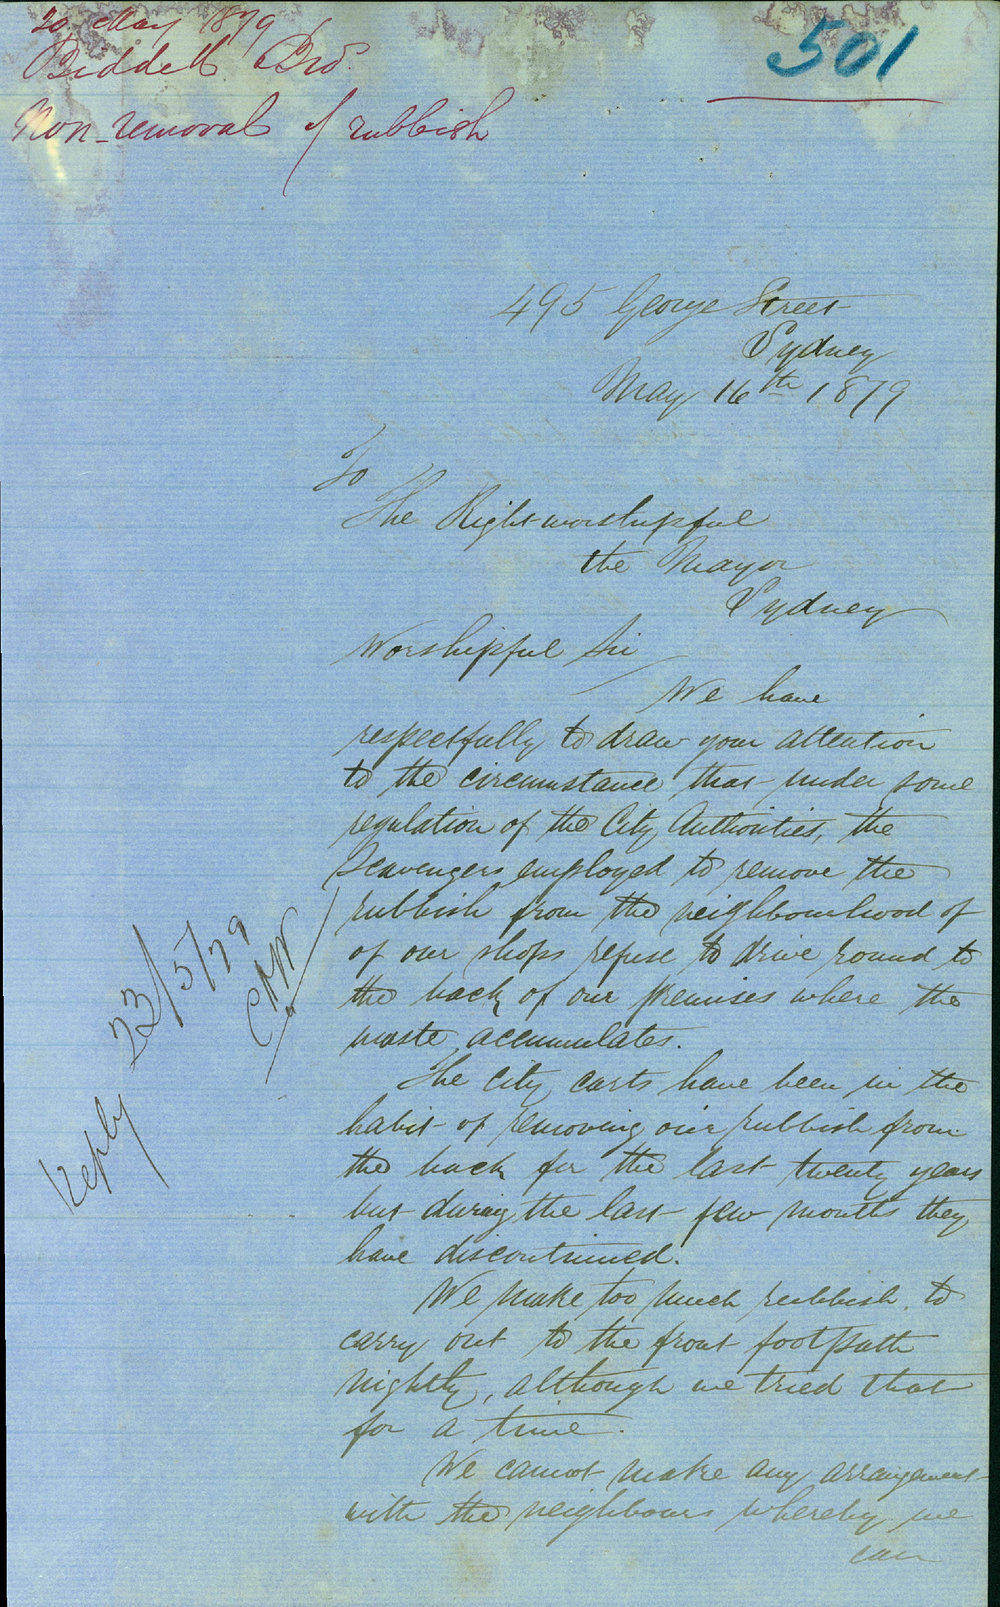 20 May 1879
Biddell Bro.
501
Non-removal of rubbish
495 George Street
Sydney
May 16th 1879
To
The Right worshipful
the Mayor
Sydney
Worshipful Sir
We have
respectfully to draw your attention
to the circumstance that under some
regulation of the City Authorities, the
Scavengers employed to remove the
rubbish from the neighbourhood of
of our shops refuse to drive round to
the back of our premises where the
waste accumulates.
The city carts have been in the
habit of removing our rubbish from
the back for the last twenty years
but during the last few months they
have discontinued.
We make too much rubbish to
carry out to the front footpath
nightly, although we tried that
for a time.
We cannot make any arrangement
with the neighbours whereby we
can
Reply 23/5/79